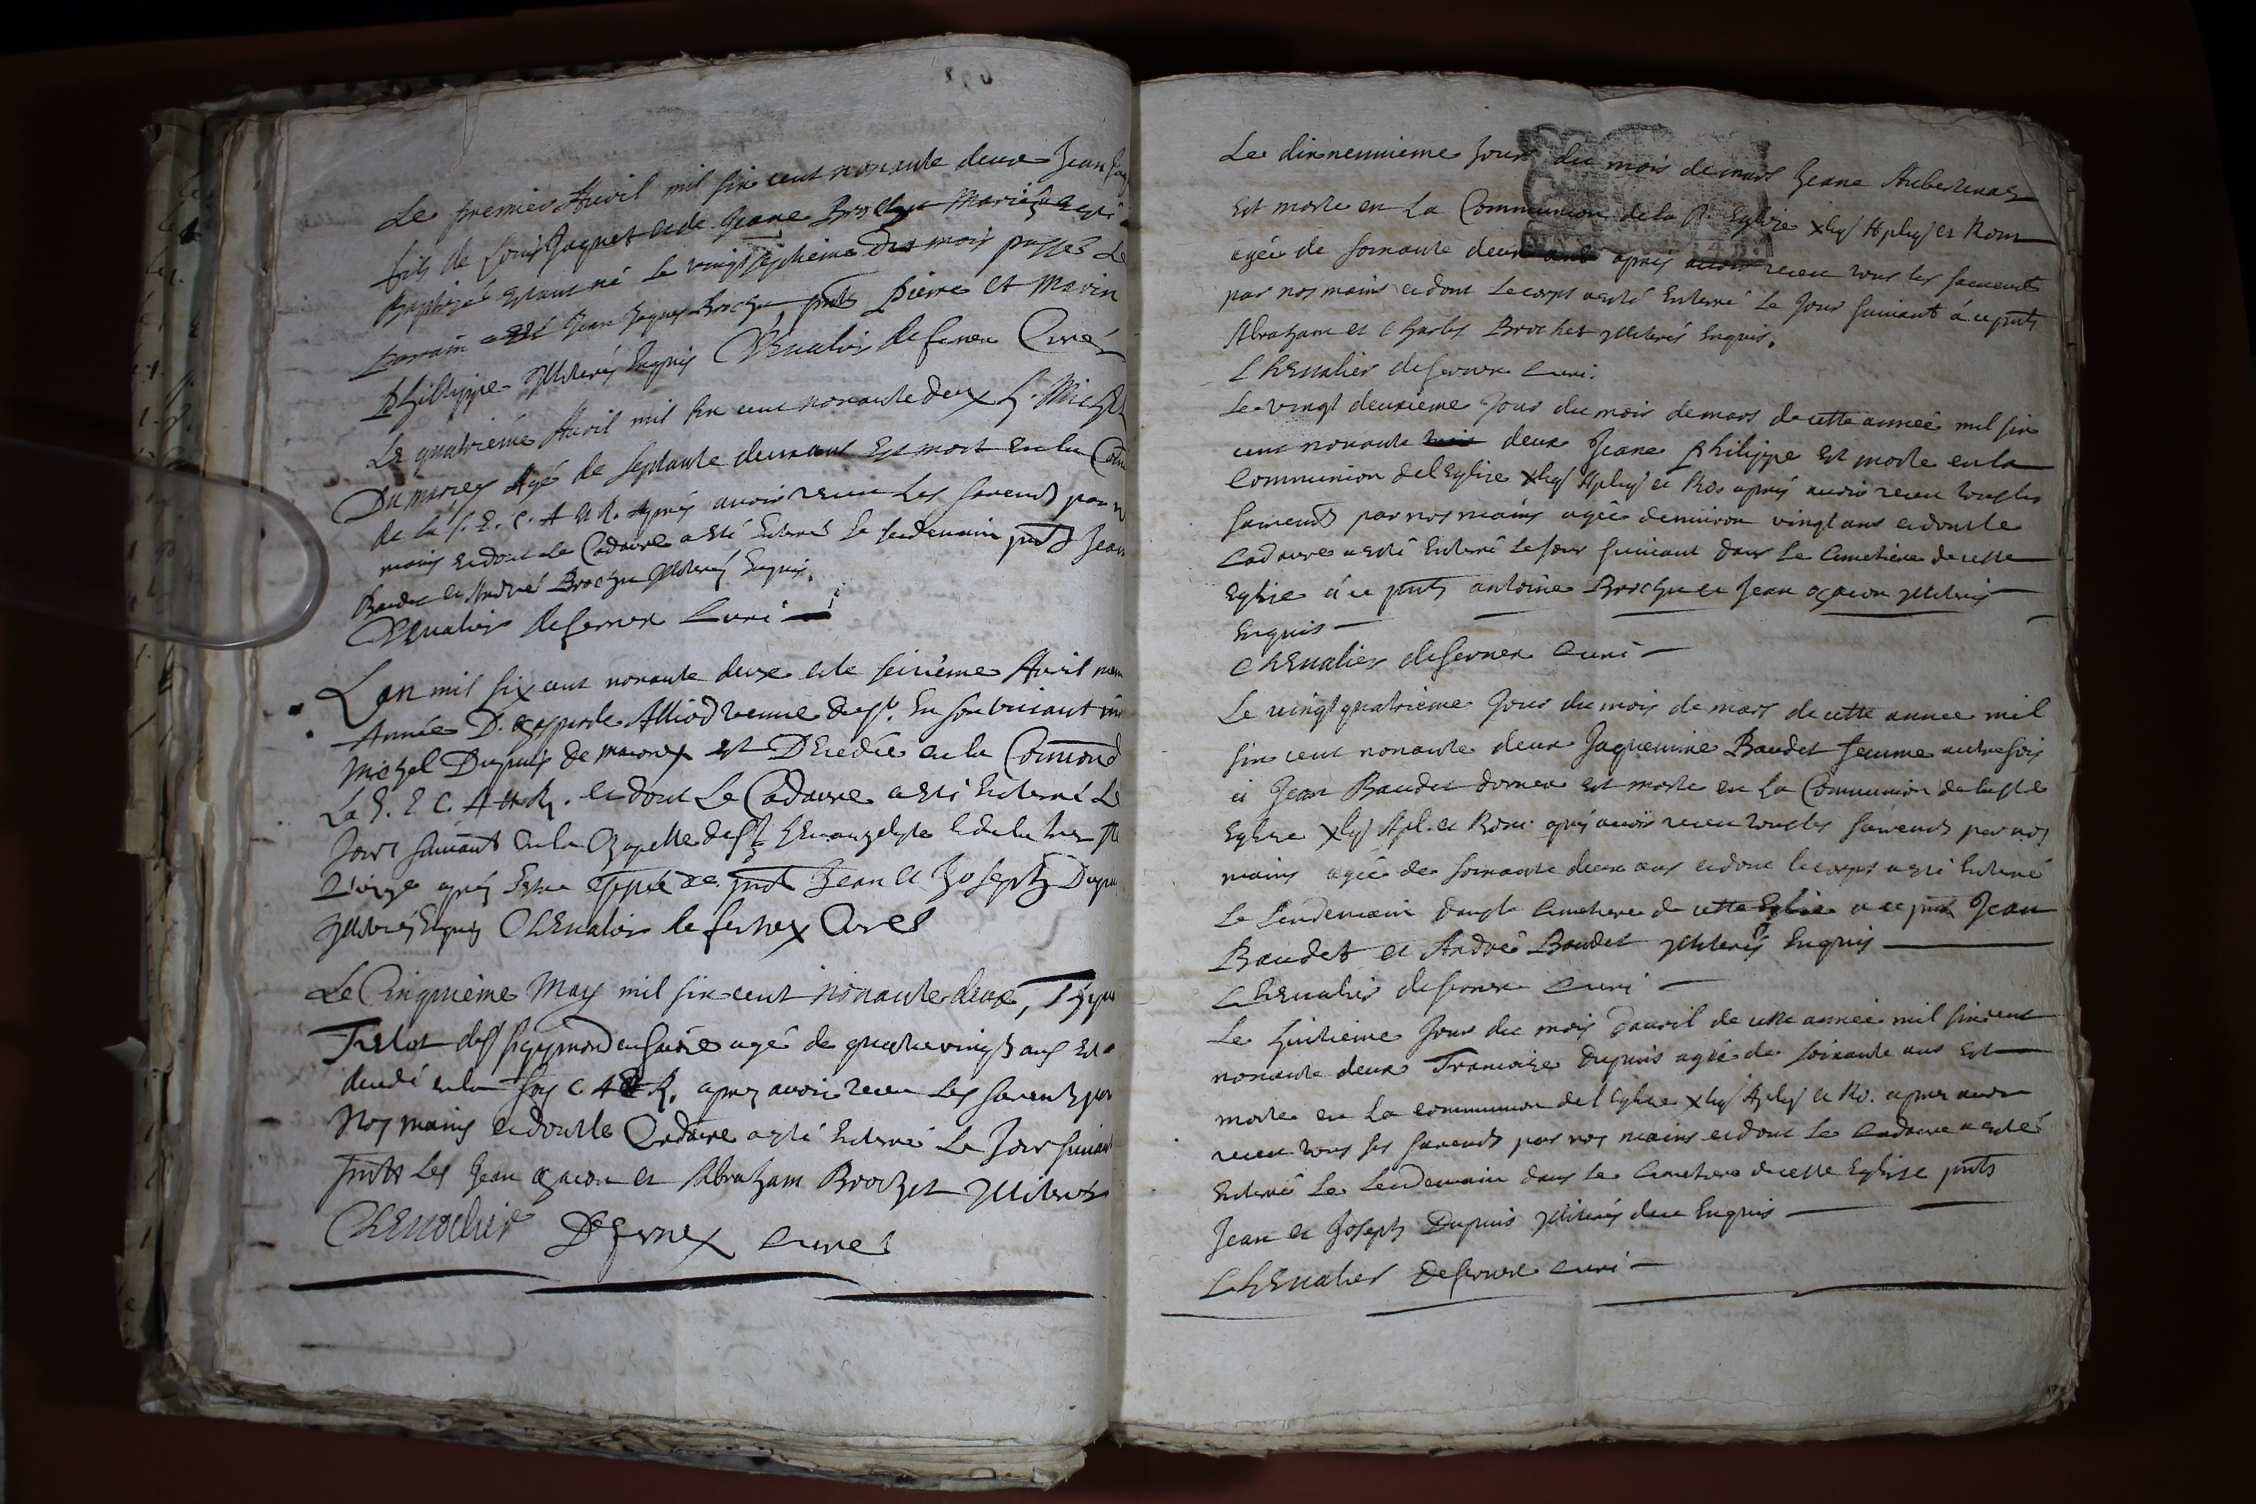 Le premier Avril mil six cent nonante deux Jean
fils de Louis Jaquet et de Jeane Brochu Mariés a esté
Baptizé estant né le vingt septieme du mois passé Le
parrain a esté Jean Jaques Brochu, pnts Pierre et Marin
Philippe Illiterés Enquis ChEvalier de fernex Curé
Le quatrième Avril mil six cent nonante deux h. Michel
Dumarey Agé de septante deux ans est mort en la Com
de la S. E. C. A et R. Après avoir receu Les sacents par n
mains et dont le Cadavre a esté Enterré le lendemain pnts Jean
Baudet et André Brochu Illiterés Enquis.
ChEvalier de fernex Curé
L an mil six cent nonante deux et le seizième Avril
Année D. gasparde Alliod veuve de sr. En son vivant
Michel Dupuis de est DEcedée en la Comond
La S. E C. A et R. et dont Le Cadavre a esté Enterré Le
Jour suivant en la Chapelle de St. J Evangelyste et de la
Vierge après pnts Jean et Joseph Dupu
Illiterés Enquis ChEvalier de fernex Curé
Le Cinquième May mil six cent Nonante deux,
Fidelot de agé de quatre vingt ans est
decedé en la foy C. A et R. apres avoir receu Les sacents par
Nos mains et dont le Cadavre a esté Enterré Le Jour suivant
pnts Les Jean et Abraham Brochet Illiterés
ChEvalier Defernex Curé
Le dixneuvieme Jour du mois de mars Jeane
Est morte en La Communion de la St. Eglise xlq Aplq et Rom
agée de soixante deux ans après avoir receu tous les sacements
par nos mains et dont Le corps a esté Enterré Le Jour suivant à ce pnts
Abraham et Charles Brochet Illiterés Enquis.
ChEvalier de fernex Curé.
Le vingt deuxieme Jour du mois de mars de cette année mil six
cent nonante trois deux Jeane Philippe Est morte en la
Communion de l Eglise xlq Aplq et Ro apres avoir receu tous les
sacements par nos mains agée denviron vingt ans et dont le
Cadavre a esté Enterré Le Jour suivant dans Le Cimetiere de cette
Eglise à ce pnts antoine Brochu et Jean Illiterés
Enquis
ChEvalier de fernex Curé
Le vingt quatrieme Jour du mois de mars de cette année mil
six cent nonante deux Jaquemine Baudet femme autresfois
à Jean Baudet dornex est morte en La Communion de la ste
Eglise xlq Apl. et Rom. après avoir receu tous les sacements par nos
mains agée de soixante deux ans et dont le corps a esté Enterré
Le Lendemain dans le Cimetiere de cette Eglise a ce pnts Jean
Baudet et André Baudet Illiterés Enquis
ChEvalier de fernex Curé
Le huitieme Jour du mois d'avril de cette année mil six cent
nonante deux Francoise Dupuis agée de soixante ans Est
morte en La communion de l Eglise xlq Aplq et Ro. apres avoir
receu tous ses sacements par nos mains et dont Le Cadavre a esté
Enterré Le Lendemain dans Le Cimetiere de cette Eglise pnts
Jean et Joseph Dupuis Illiterés deue Enquis
ChEvalier de fernex Curé